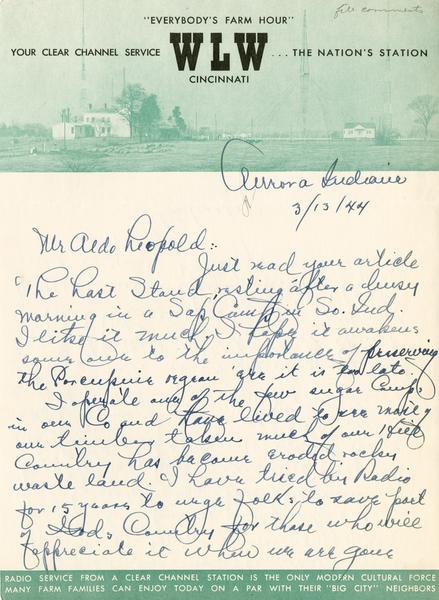 file comments
"EVERYBODY'S FARM HOUR"
YOUR CLEAR CHANNEL SERVICE WLW ... THE NATION'S STATION
CINCINNATI
Aurora Indiana
3/13/44
Mr Aldo Leopold:
Just read your article
"The Last Stand, resting after a
morning in a Sap Camp in So. Ind.
I like it much, I hope it awakens
some one to the importance of preserving
the Porcupine region 'ere it is too late.
I operate one of the few sugar Camps
in our Co and have lived to see
our timber taken much of our Hill
Country has become eroded rocky
waste land. I have tried by Radio
for 15 years to urge folks to save part
of Gods Country for those who will
appreciate it when we are gone
RADIO SERVICE FROM A CLEAR CHANNEL STATION IS THE ONLY MODERN CULTURAL FORCE
MANY FARM FAMILIES CAN ENJOY TODAY ON A PAR WITH THEIR "BIG CITY" NEIGHBORS